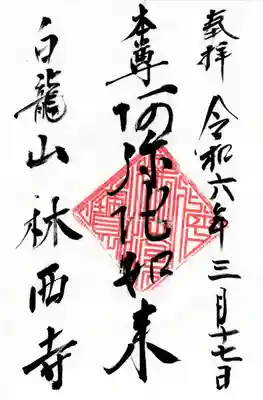 奉拝
令和六年三月十七日
本尊
阿弥陀如来
白龍山林西寺